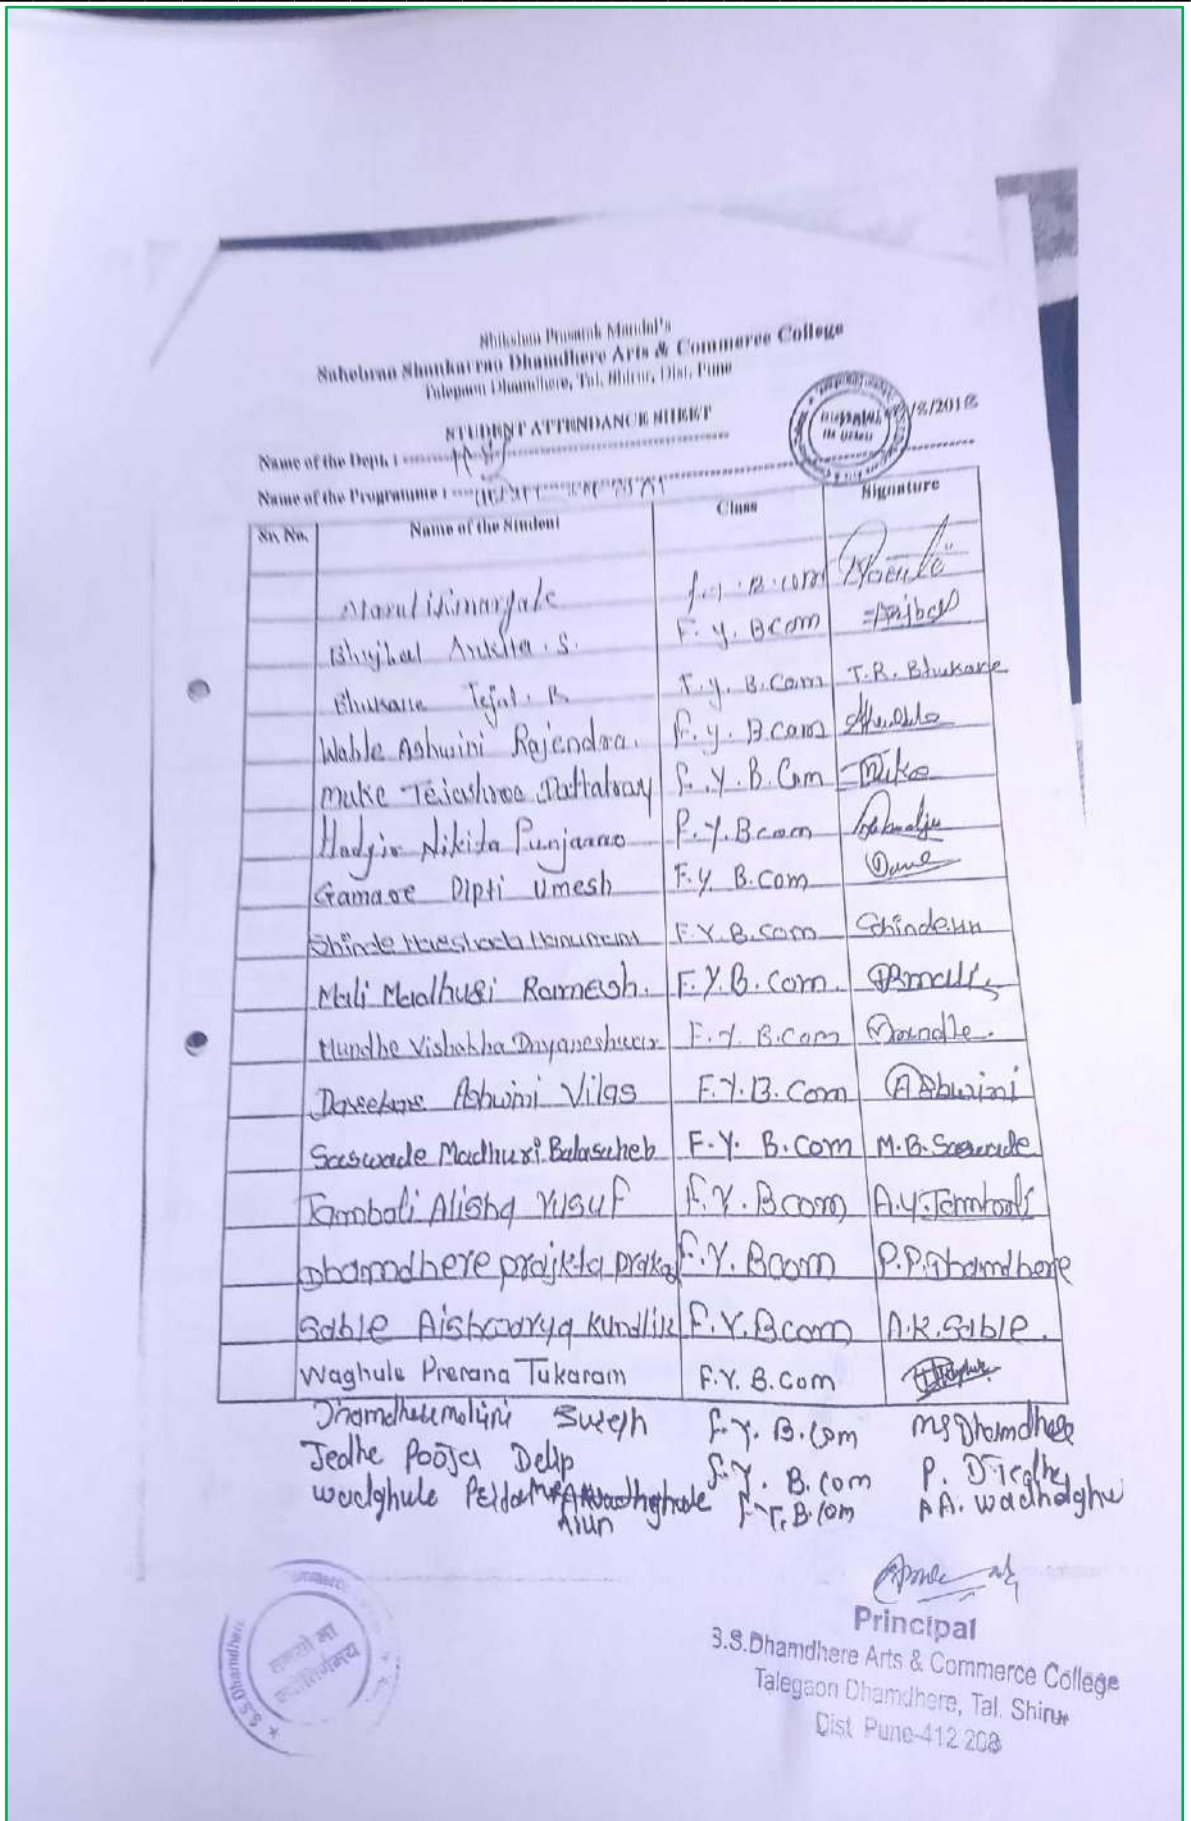 Shikshan Prasarak Mandal's
Sahebrao Shankarrao Dhamdhere Arts & Commerce College
Talegaon Dhamdhere, Tal. Shirur, Dist. Pune
STUDENT ATTENDANCE SHEET
/8/2018
Name of the Dept. :
Name of the Programme :
Sr. No. Name of the Student Class Signature
F.Y. B.com
Bhujbal Ankita . S. F. Y. BCom
Bhukare Tejal . R F.y. B.Com T.R. Bhukare
Wable Ashwini Rajendra. F. y. B.com
Muke Tejashree Dattatray F. Y. B. Com Muke
Nikita Punjarao F.Y.Bcom
Gamare Dipti Umesh F.Y. B.Com
Shinde Hanumant F.Y.B.com
Mali Madhuri Ramesh. F.Y.B. Com.
Mundhe Vishakha Dnyaneshwar F.Y. B.Com
Darekar Ashwini Vilas F.Y.B. Com Ashwini
Saswade Madhuri Balasaheb F.Y. B.Com M.B. Saswade
Tamboli Alisha Yusuf F.Y. Bcom A.Y.Tamboli
Dhamdhere prajkta praka F.Y. Bcom P.P.Dhamdhere
Sable Aishwarya Kundlik F.Y.Bcom A.K.Sable.
Waghule Prerana Tukaram F.Y. B.Com
Dhamdhere mohini F.Y. B.Com MS Dhamdhere
Jedhe Pooja Delip F.Y. B.Com
wadghule F.Y.B.Com
Principal
S.S.Dhamdhere Arts & Commerce College
Talegaon Dhamdhere, Tal. Shirur
Dist Pune-412 208
S.S.Dhamdhere